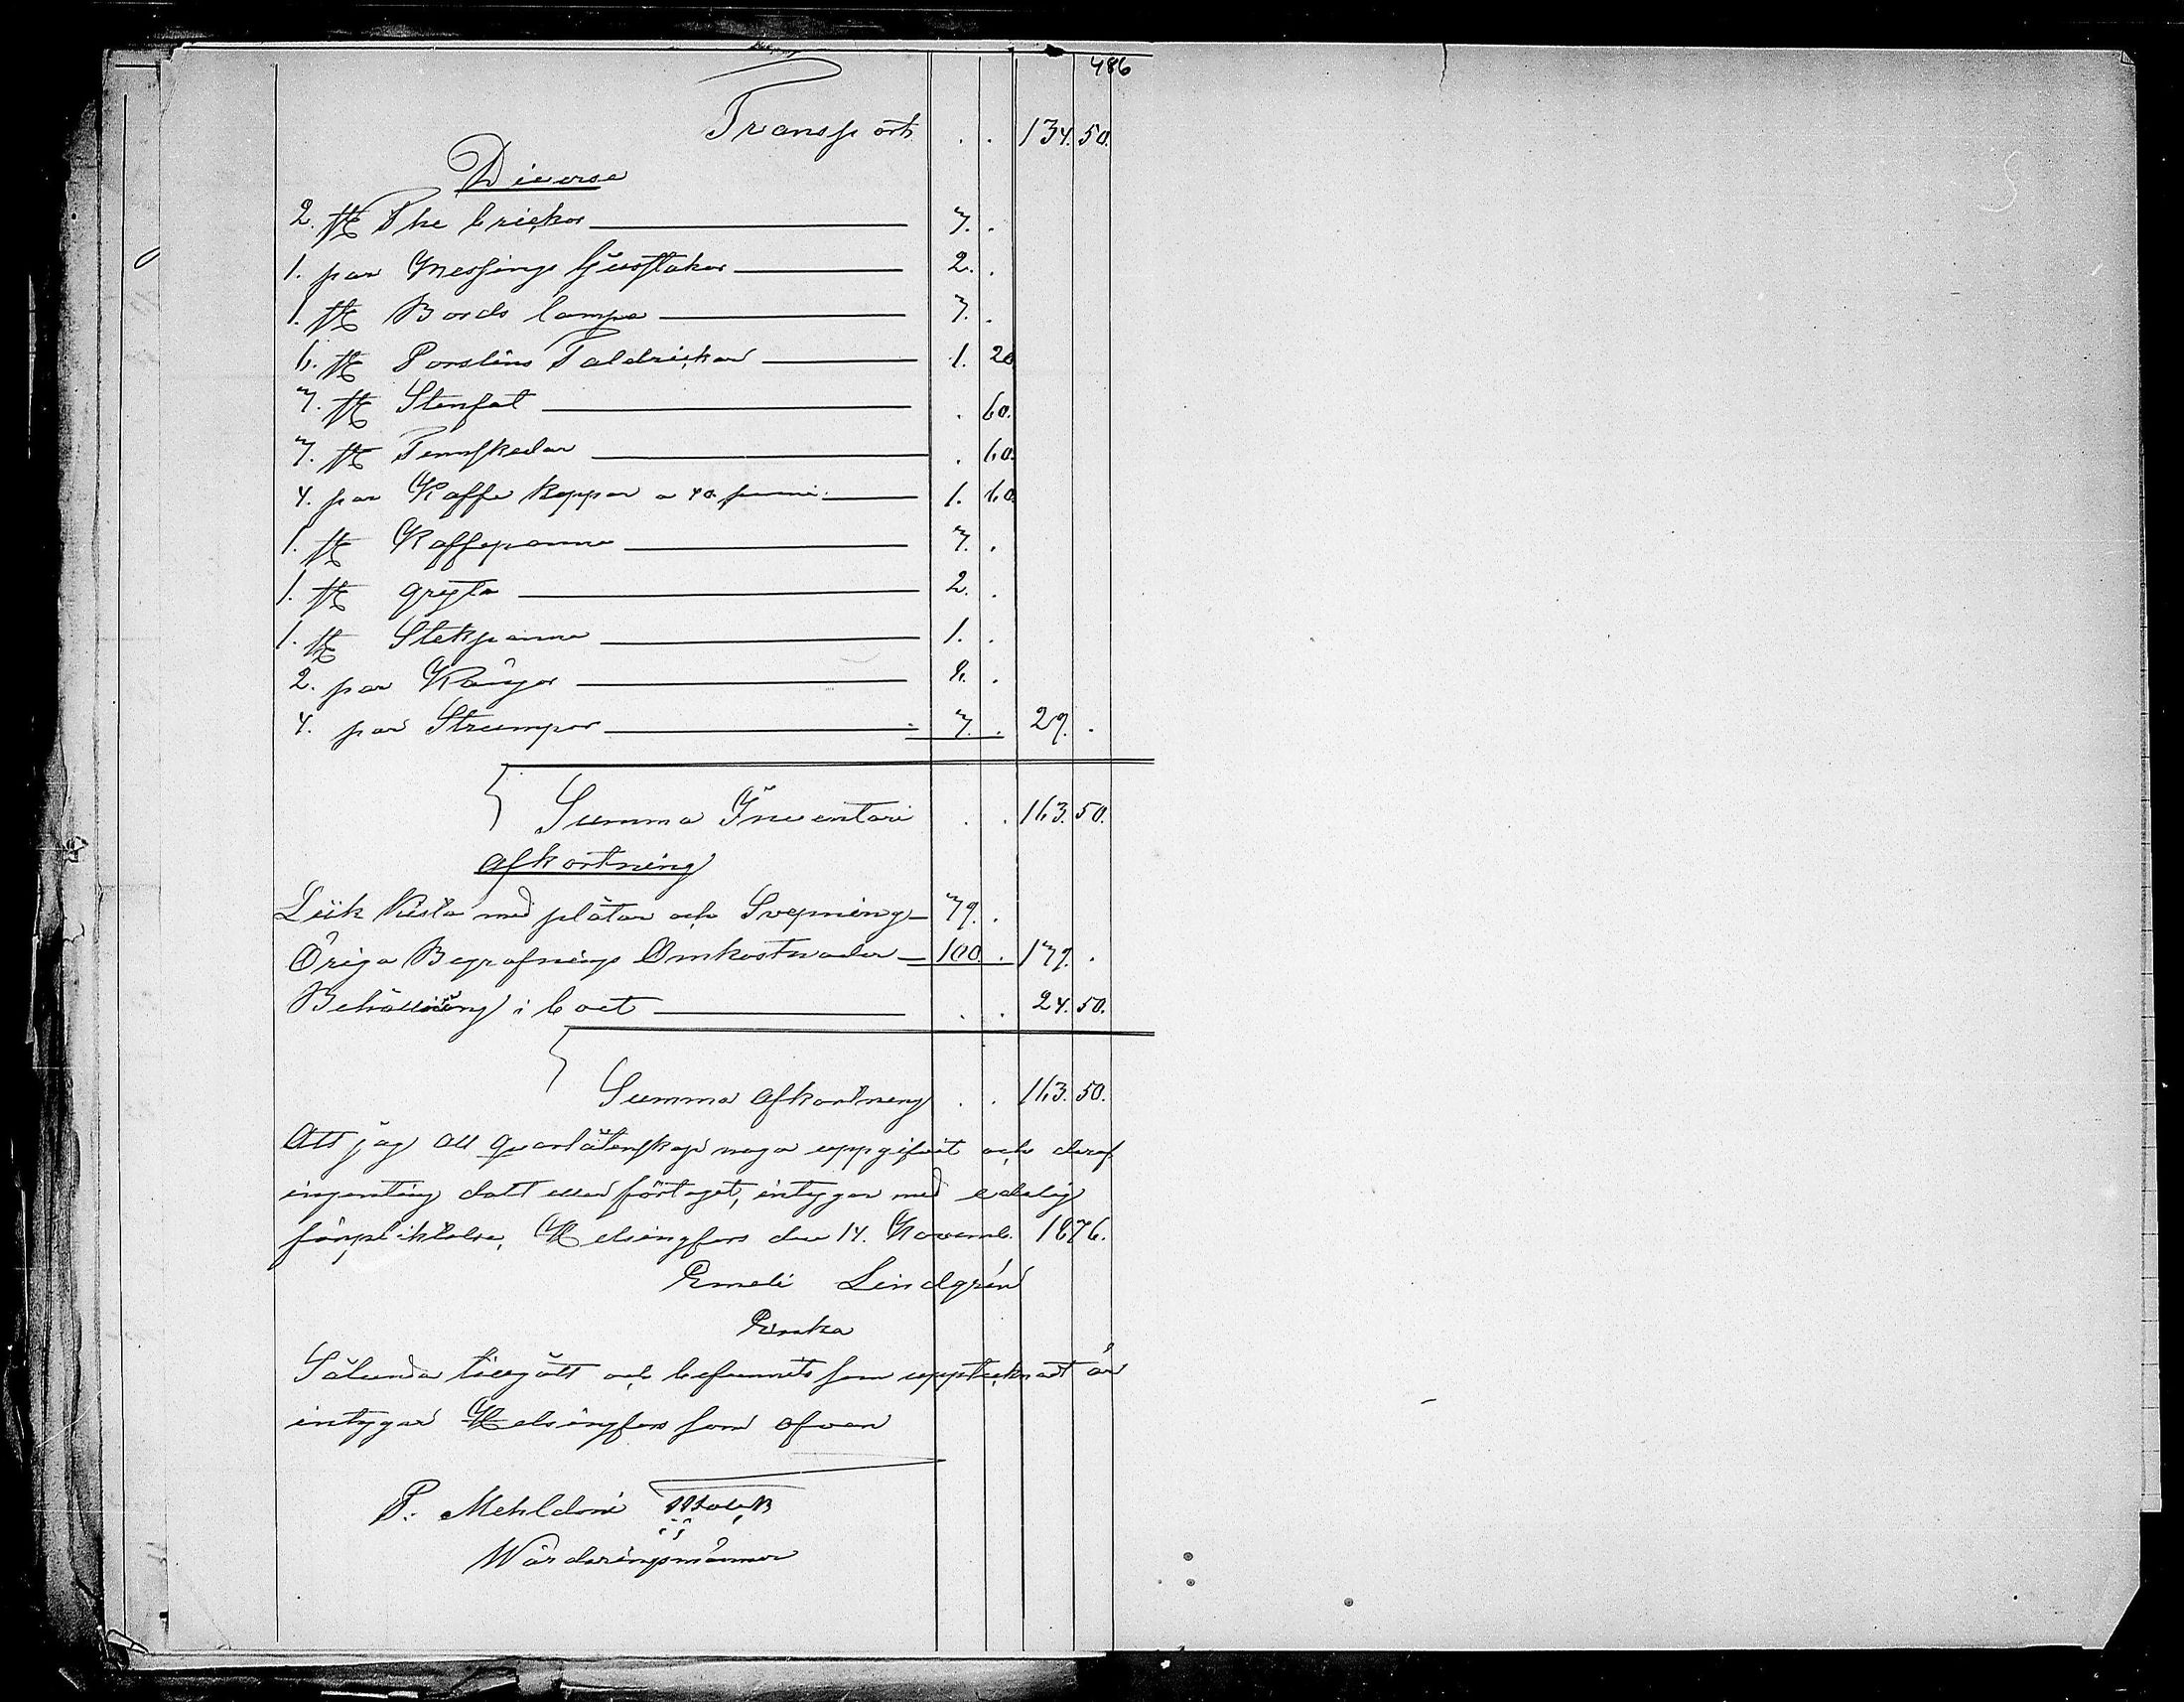 486
Transport . . 134. 50.
Diverse
2. st The brickor 3. .
1. par Messings ljusstakar 2. .
1. st Bords lampa 3. .
6. st Porslins Taldrickar 1. 20
3. st Stenfat . 60.
3. st Tennskedar . 60.
4. par Kaffe koppar a 40 penni 1. 60.
1. st Kaffepanna 3. .
1. st gryta 2. .
1. st Stekpanna 1. .
2. par Kängor 8. .
4. par Strumpor 3. . 29. .
Summa Inventari . . 163. 50.
afkortning
Liik kista med plåtar och Svepning 39. .
Öriga Begrafnings Omkostnader 100. . 139. .
Behållning i boet . . 24. 50.
Summa afkortning . . 163. 50.
Att jag all qvarlåtenskap noga uppgifvit och deraf
ingenting dolt eller förtegat, intygar med edelig
förpliktelse, Helsingfors den 14. Novemb. 1876.
Emeli Lindgrén
Enka
Sålunda tillgått och befunnits som upptecknadt är
intygar Helsingfors som ofvan
P. Mehldoni
Wärderingsmännor